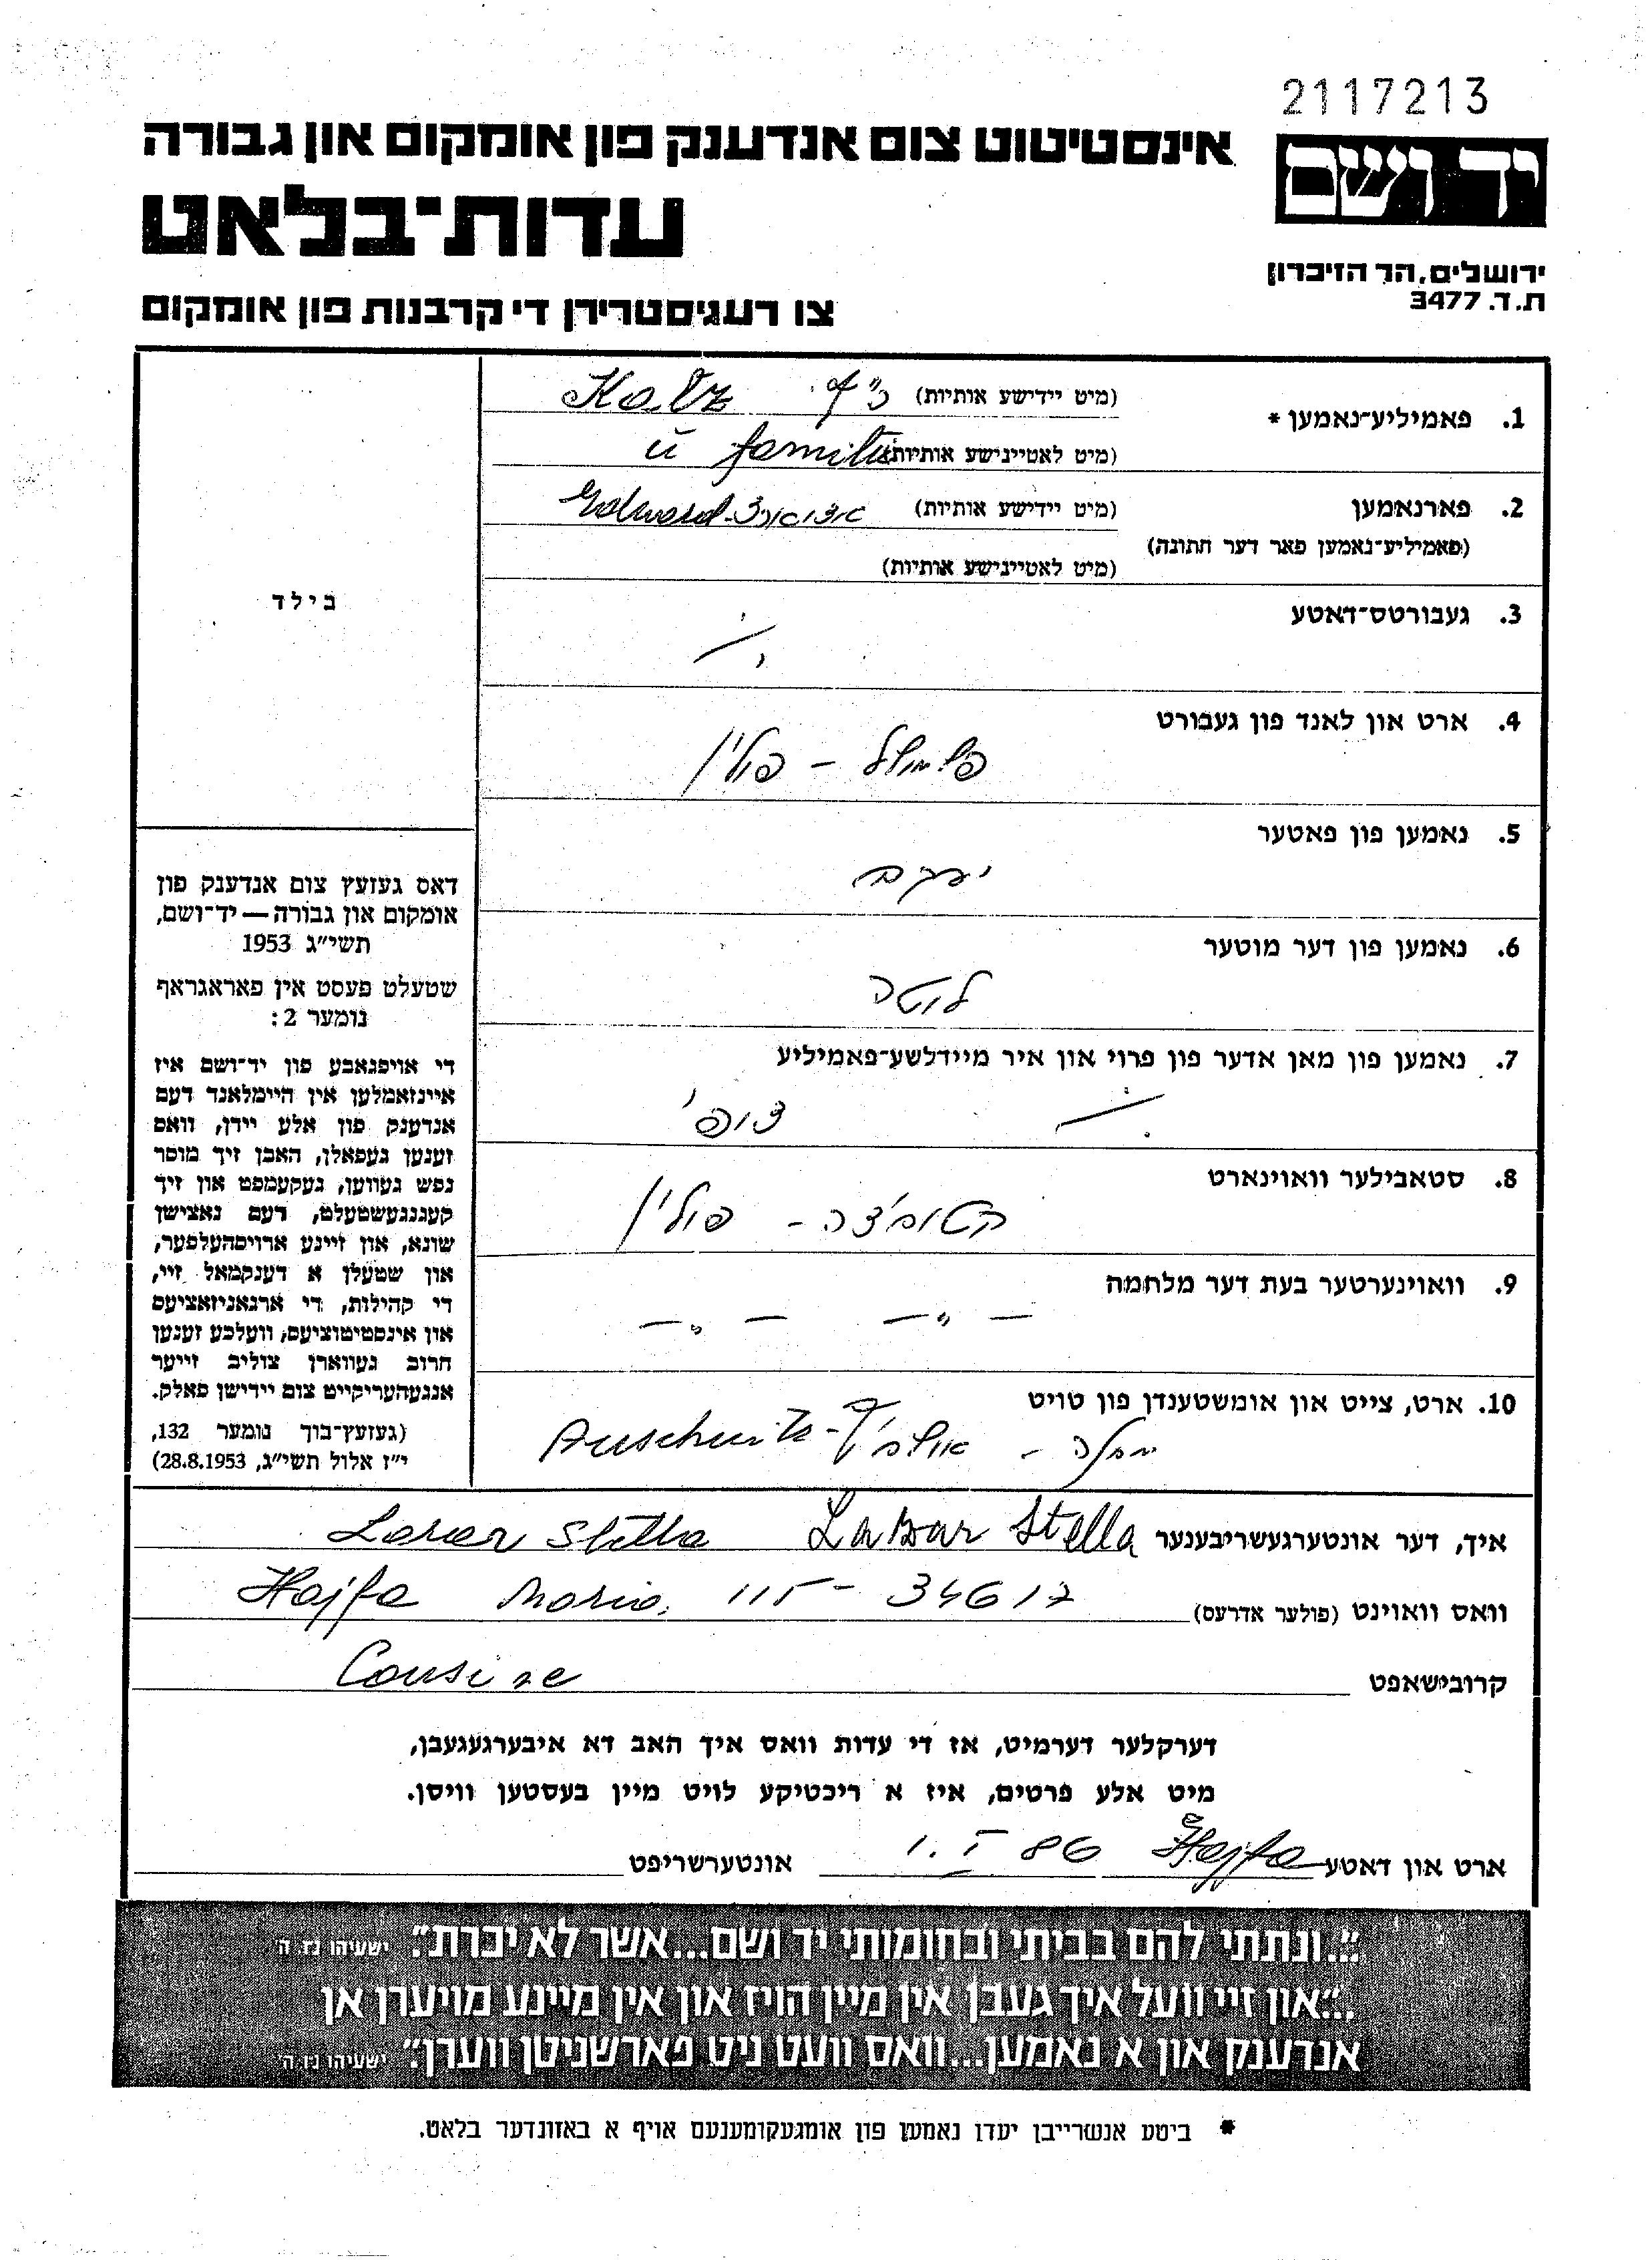 2117213
אינסטיטוט צום אנדענק פון אומקום און גבורה
יד ושם
עדות־בלאט
ירושלים, הר הזיכרון
ת.ד. 3477
צו רעגיסטרירן די קרבנות פון אומקום
1. פאמיליע־נאמען * (מיט יידישע אותיות) כ״ץ Katz
(מיט לאטיינישע אותיות) u familie
2. פארנאמען (מיט יידישע אותיות) אדוארד Edward
(פאמיליע־נאמען פאר דער חתונה)
(מיט לאטיינישע אותיות)
בילד
3. געבורטס־דאטע
4. ארט און לאנד פון געבורט
פשמישל – פולין
5. נאמען פון פאטער
יעקב
6. נאמען פון דער מוטער
לוטה
7. נאמען פון מאן אדער פון פרוי און איר מיידלשע־פאמיליע
צופי
8. סטאבילער וואוינארט
קטוביצה – פולין
9. וואוינערטער בעת דער מלחמה
– ״ – – ״ –
10. ארט, צייט און אומשטענדן פון טויט
Auschwitz – אושביץ –
דאס געזעץ צום אנדענק פון
אומקום און גבורה — יד־ושם,
תשי״ג 1953
שטעלט פעסט אין פאראגראף
נומער 2:
די אויפגאבע פון יד־ושם איז
איינזאמלען אין היימלאנד דעם
אנדענק פון אלע יידן, וואס
זענען געפאלן, האבן זיך מוסר
נפש געווען, געקעמפט און זיך
קעגנגעשטעלט, דעם נאצישן
שונא, און זיינע ארויסהעלפער,
און שטעלן א דענקמאל זיי,
די קהילות, די ארגאניזאציעס
און אינסטיטוציעס, וועלכע זענען
חרוב געווארן צוליב זייער
אנגעהעריקייט צום יידישן פאלק.
(געזעץ־בוך נומער 132,
י״ז אלול תשי״ג, 28.8.1953)
איך, דער אונטערגעשריבענער Lazar Stella Lazar Stella
וואס וואוינט (פולער אדרעס) Hajfa Moria 115 – 34617
קרובישאפט Cousine
דערקלער דערמיט, אז די עדות וואס איך האב דא איבערגעגעבן,
מיט אלע פרטים, איז א ריכטיקע לויט מיין בעסטען וויסן.
ארט און דאטע Hajfa 1. I 86 אונטערשריפט
״...ונתתי להם בביתי ובחומותי יד ושם...אשר לא יכרת״. ישעיהו נו, ה
״...און זיי וועל איך געבן אין מיין הויז און אין מיינע מויערן אן
אנדענק און א נאמען...וואס וועט ניט פארשניטן ווערן״. ישעיהו נו, ה
* ביטע אנשרייבן יעדן נאמען פון אומגעקומענעם אויף א באזונדער בלאט.